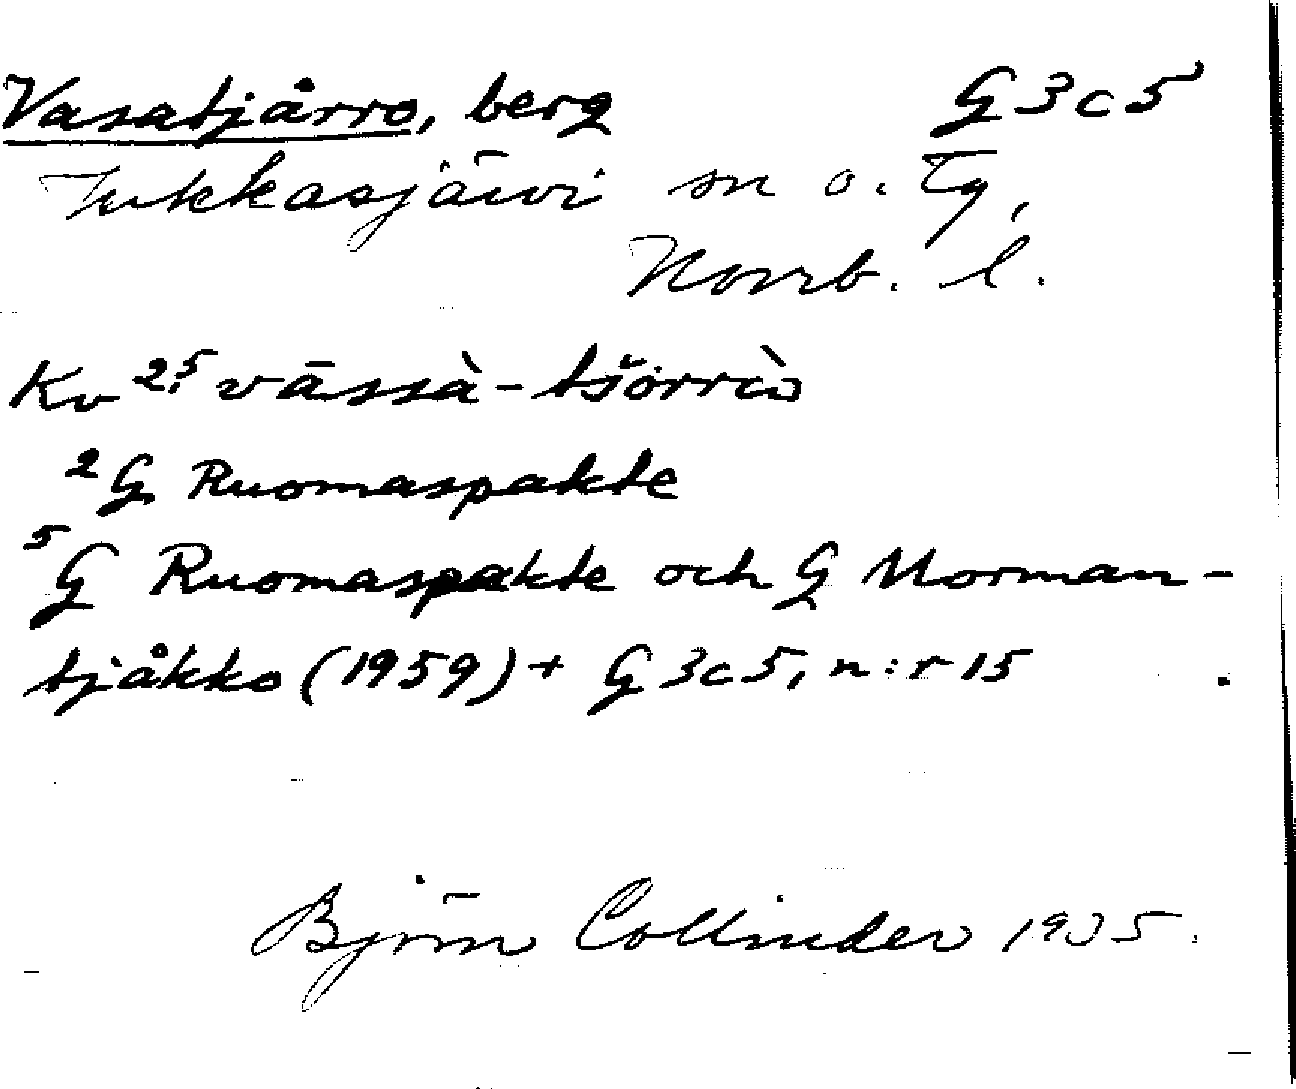 Vasatjårro, berg G3c5
Jukkasjärvi sn o. tg,
Norrb. l.
Kv 2:5 vāssà-tšorrò
2 G Ruomaspakte
5 G Ruomaspakte och G Morman-
tjåkko (1959) + G3c5, n:r 15
Björn Collinder 1935.